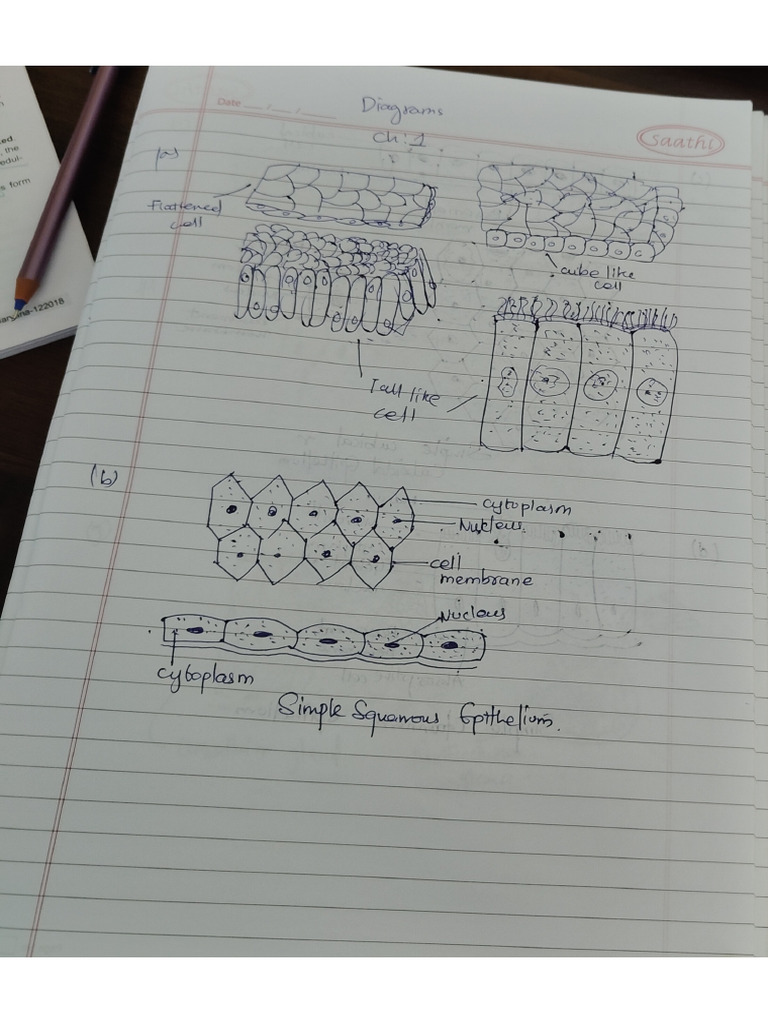 Date
Diagrams
Saathi
Ch: 1
(a)
Flattened
cell
cube like
cell
Tall like
cell
(b)
cytoplasm
Nucleus
cell
membrane
Nucleus
cytoplasm
Simple Squamous Epithelium.
ted
the
edul-
s form
-122018